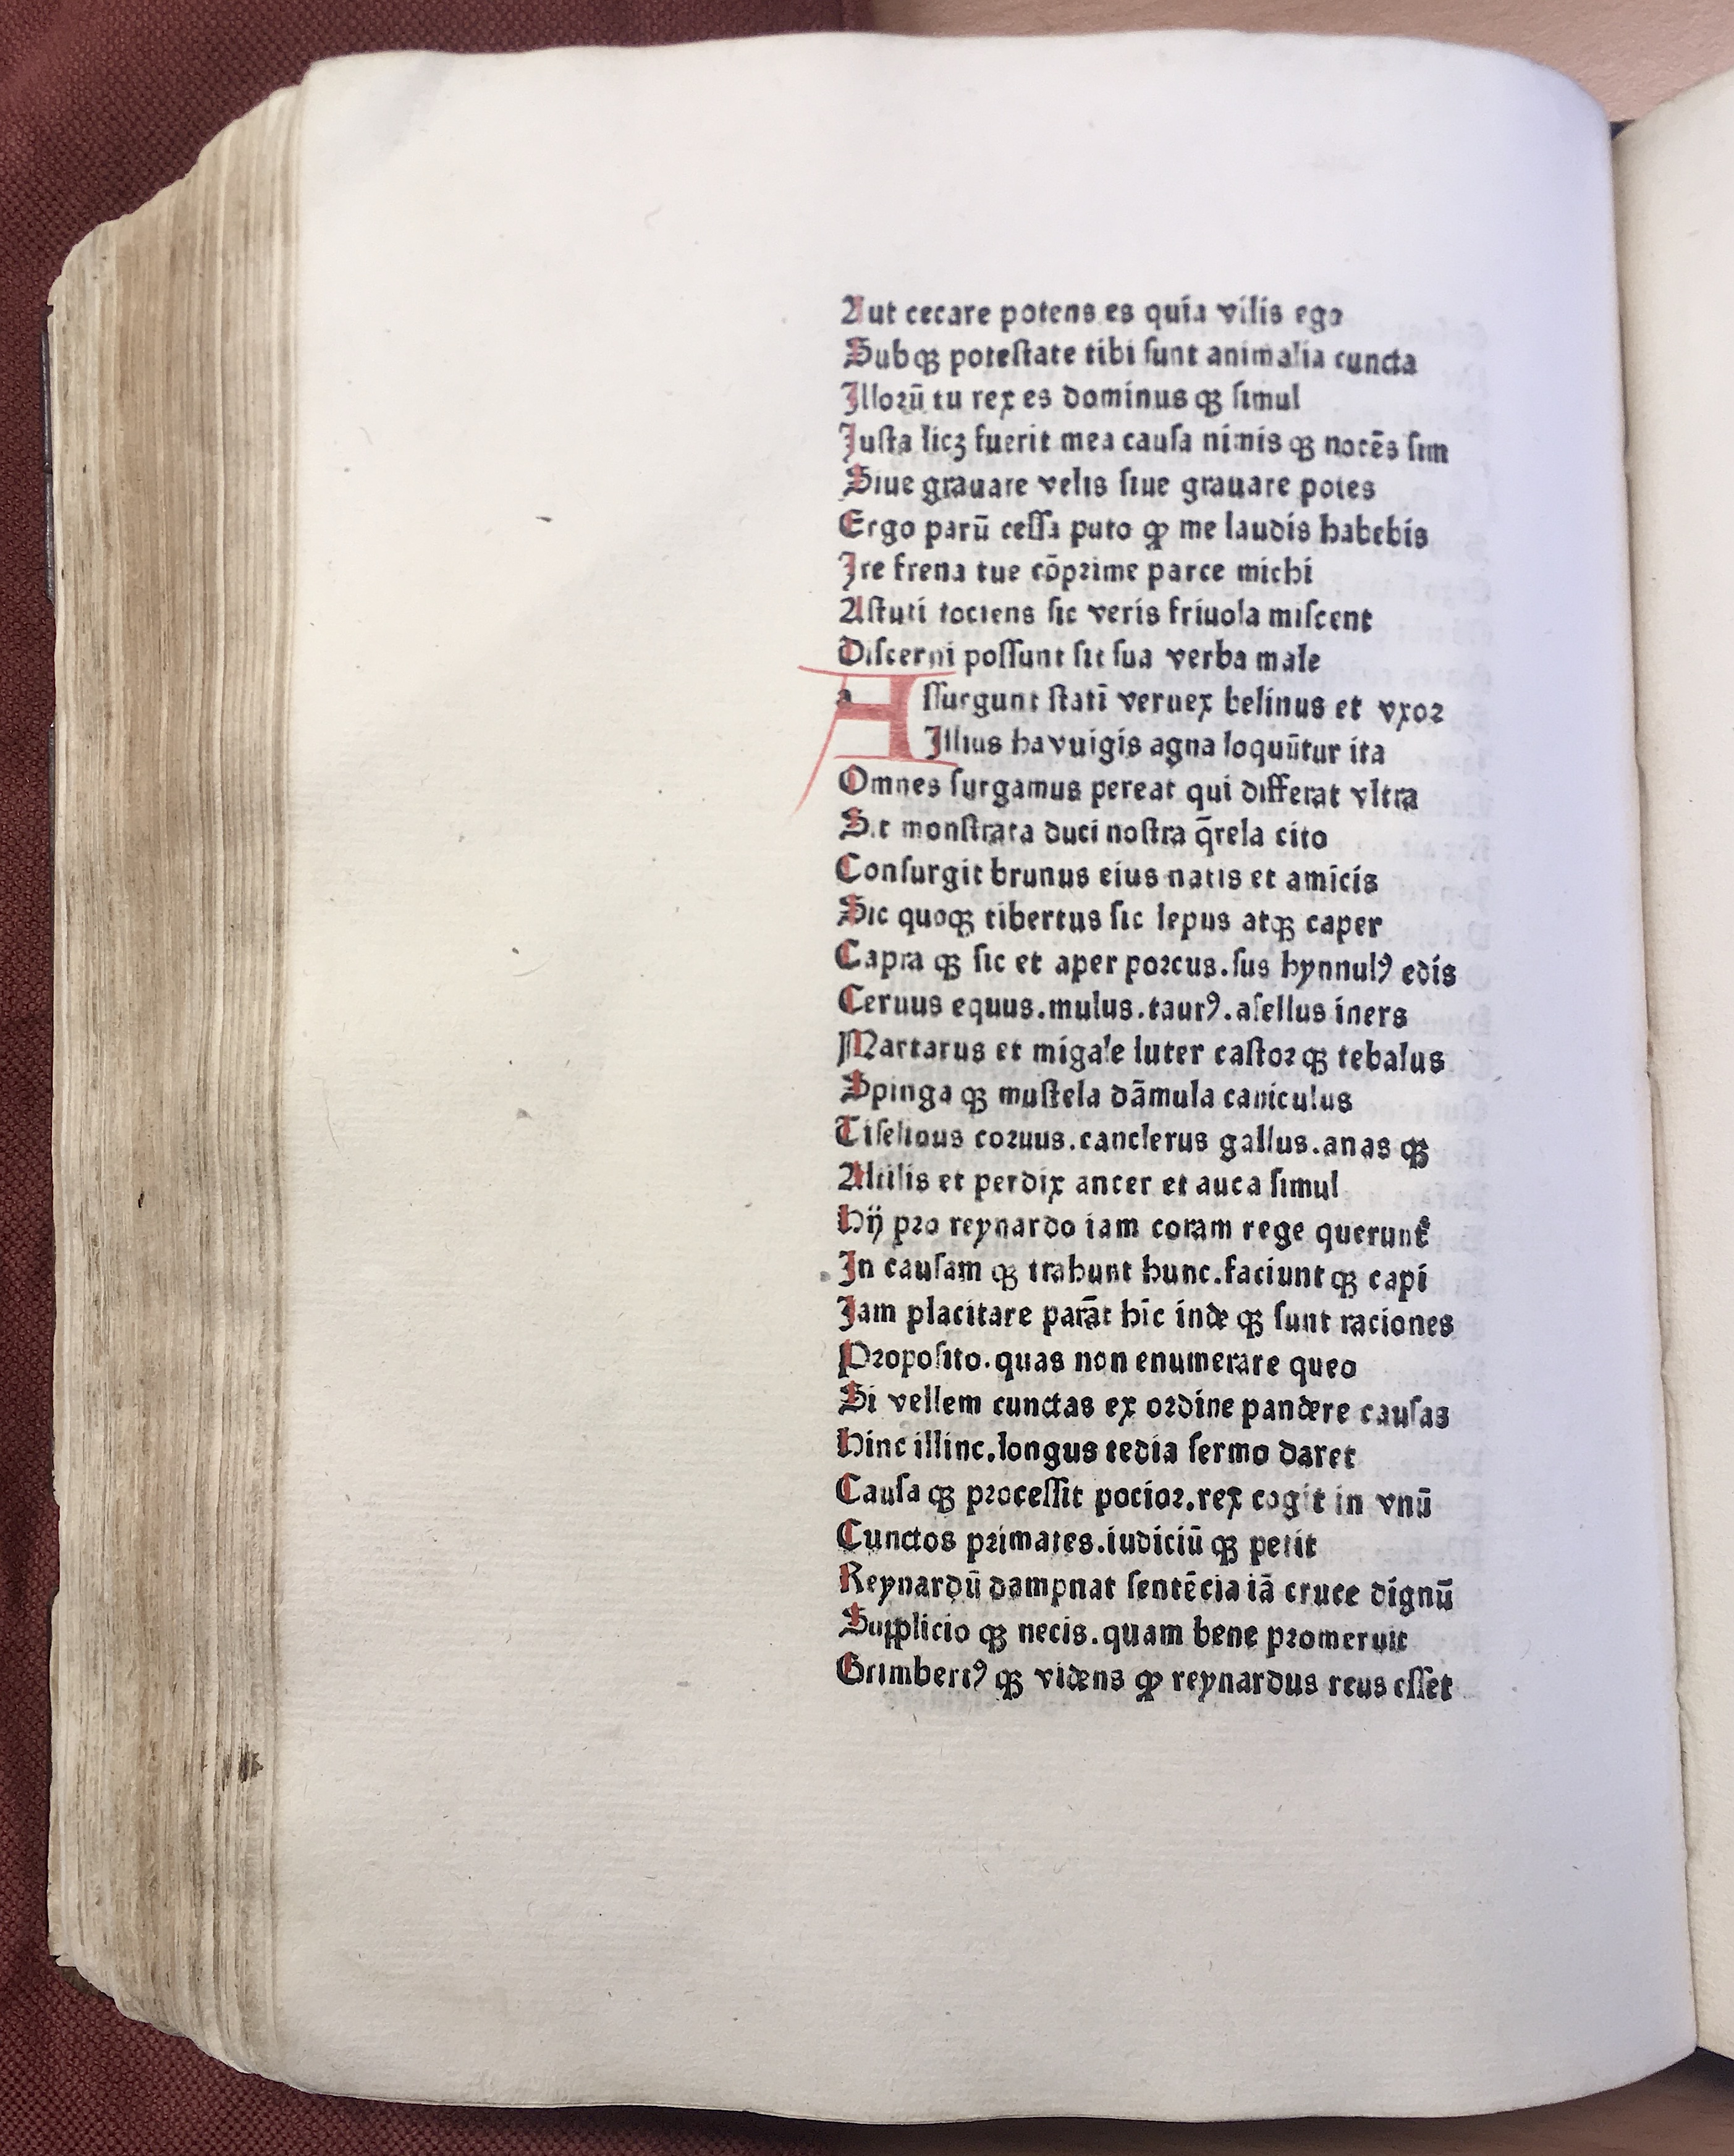 Aut cecare potens es quia vilis ego
Subqꝫ poteſtate tibi ſunt animalia cuncta
Illoꝛū tu rex es dominus qꝫ ſimul
Juſta licꝫ fuerit mea cauſa nimis qꝫ nocēs ſim
Siue grauare velis ſiue grauare potes
Ergo parū ceſſa puto ꝙ me laudis habebis
Ire frena tue cōpꝛime parce michi
Aſtuti tociens ſic veris friuola miſcent
Diſcerni poſſunt ſit ſua verba male
aſſurgunt ſtatī veruex belinus et vxoꝛ
Illius havuigis agna loquūtur ita
Omnes ſurgamus pereat qui differat vltra
Sit monſtrata duci noſtra q̄rela cito
Conſurgit brunus eius natis et amicis
Sic quoqꝫ tibertus ſic lepus atqꝫ caper
Capra qꝫ ſic et aper poꝛcus.ſus hynnulꝰ edis
Ceruus equus.mulus.taurꝰ.aſellus iners
Martarus et migale luter caſtoꝛ qꝫ tebalus
Spinga qꝫ muſtela dāmula caniculus
Tiſelinus coꝛuus.canclerus gallus.anas qꝫ
Altilis et perdix ancer et auca ſimul
Hij pꝛo reynardo iam coram rege querunt᷑
In cauſam qꝫ trahunt hunc.faciunt qꝫ capi
Jam placitare parāt hīc inde qꝫ ſunt raciones
Pꝛopoſito.quas non enumerare queo
Si vellem cunctas ex oꝛdine pandere cauſas
Hinc illinc.longus tedia ſermo daret
Cauſa qꝫ pꝛoceſſit pocioꝛ.rex cogit in vnū
Cunctos pꝛimates.iudiciū qꝫ petit
Reynardū dampnat ſentēcia iā cruce dignū
Supplicio qꝫ necis.quam bene pꝛomeruit
Grimbertꝰ qꝫ videns ꝙ reynardus reus eſſet